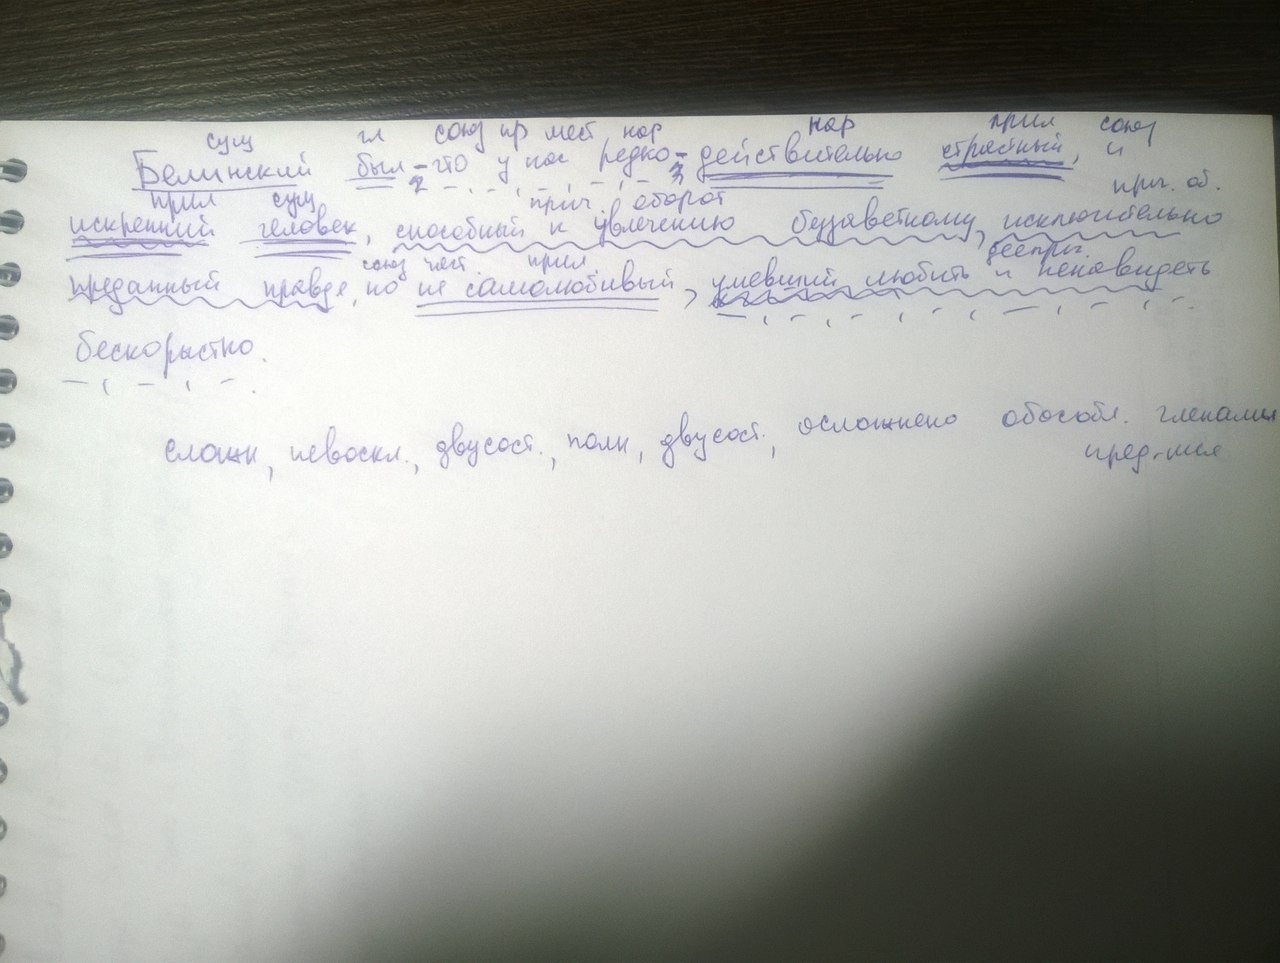 сущ гл союз пр мест нар нар прил союз
Белинский был - что у нас редко - действительно страстный, и
прил сущ прич. оборот прич. об.
искренний человек, способный к увлечению беззаветному, исключительно
союз част. прил дееприч.
преданный правде, но не самолюбивый, умевший любить и ненавидеть
бескорыстно.
сложн, невоскл., двусост., полн, двусост., осложнено обособл. членами
пред-ния